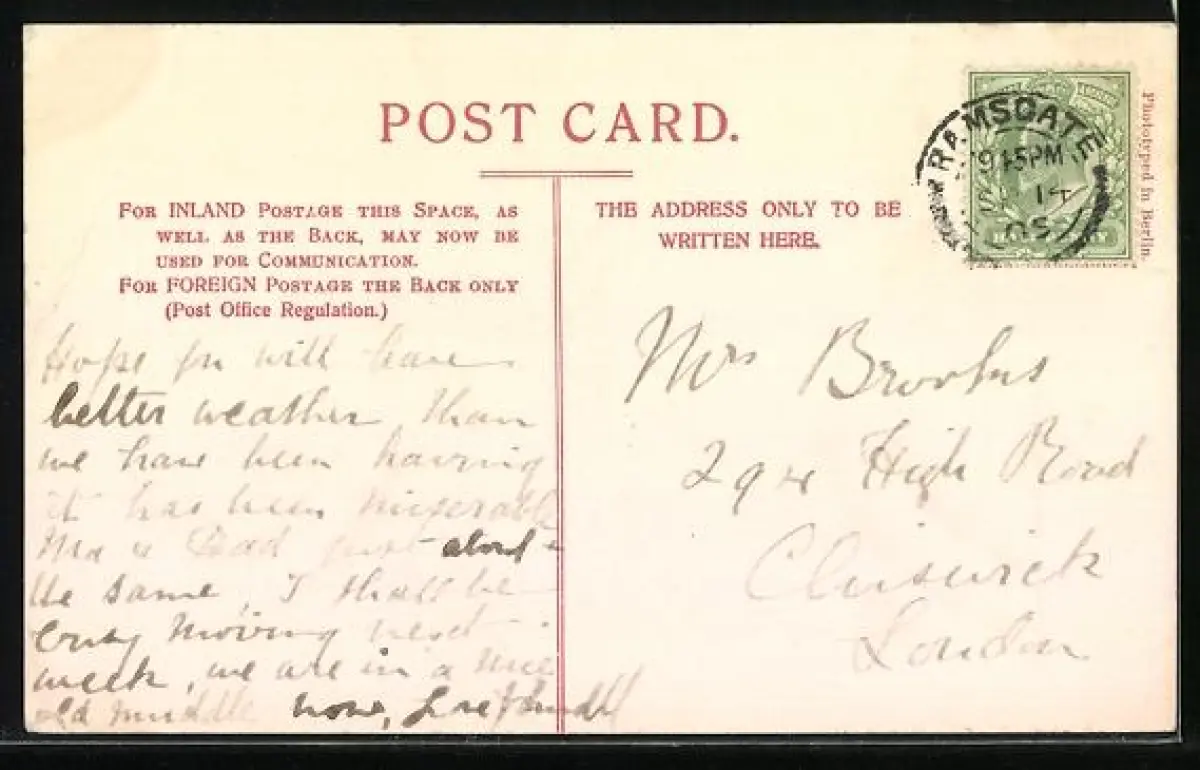 POST CARD.
FOR INLAND POSTAGE THIS SPACE, AS
WELL AS THE BACK, MAY NOW BE
USED FOR COMMUNICATION.
FOR FOREIGN POSTAGE THE BACK ONLY
(Post Office Regulation.)
THE ADDRESS ONLY TO BE
WRITTEN HERE.
RAMSGATE
9 15PM
14
Phototyped in Berlin.
Hope you will have
better weather than
we have been having
it has been miserable
Ma & Dad just about
the same, I shall be
busy moving next
week, we are in a nice
old muddle now,
Mrs
294 High Road
Chiswick
London